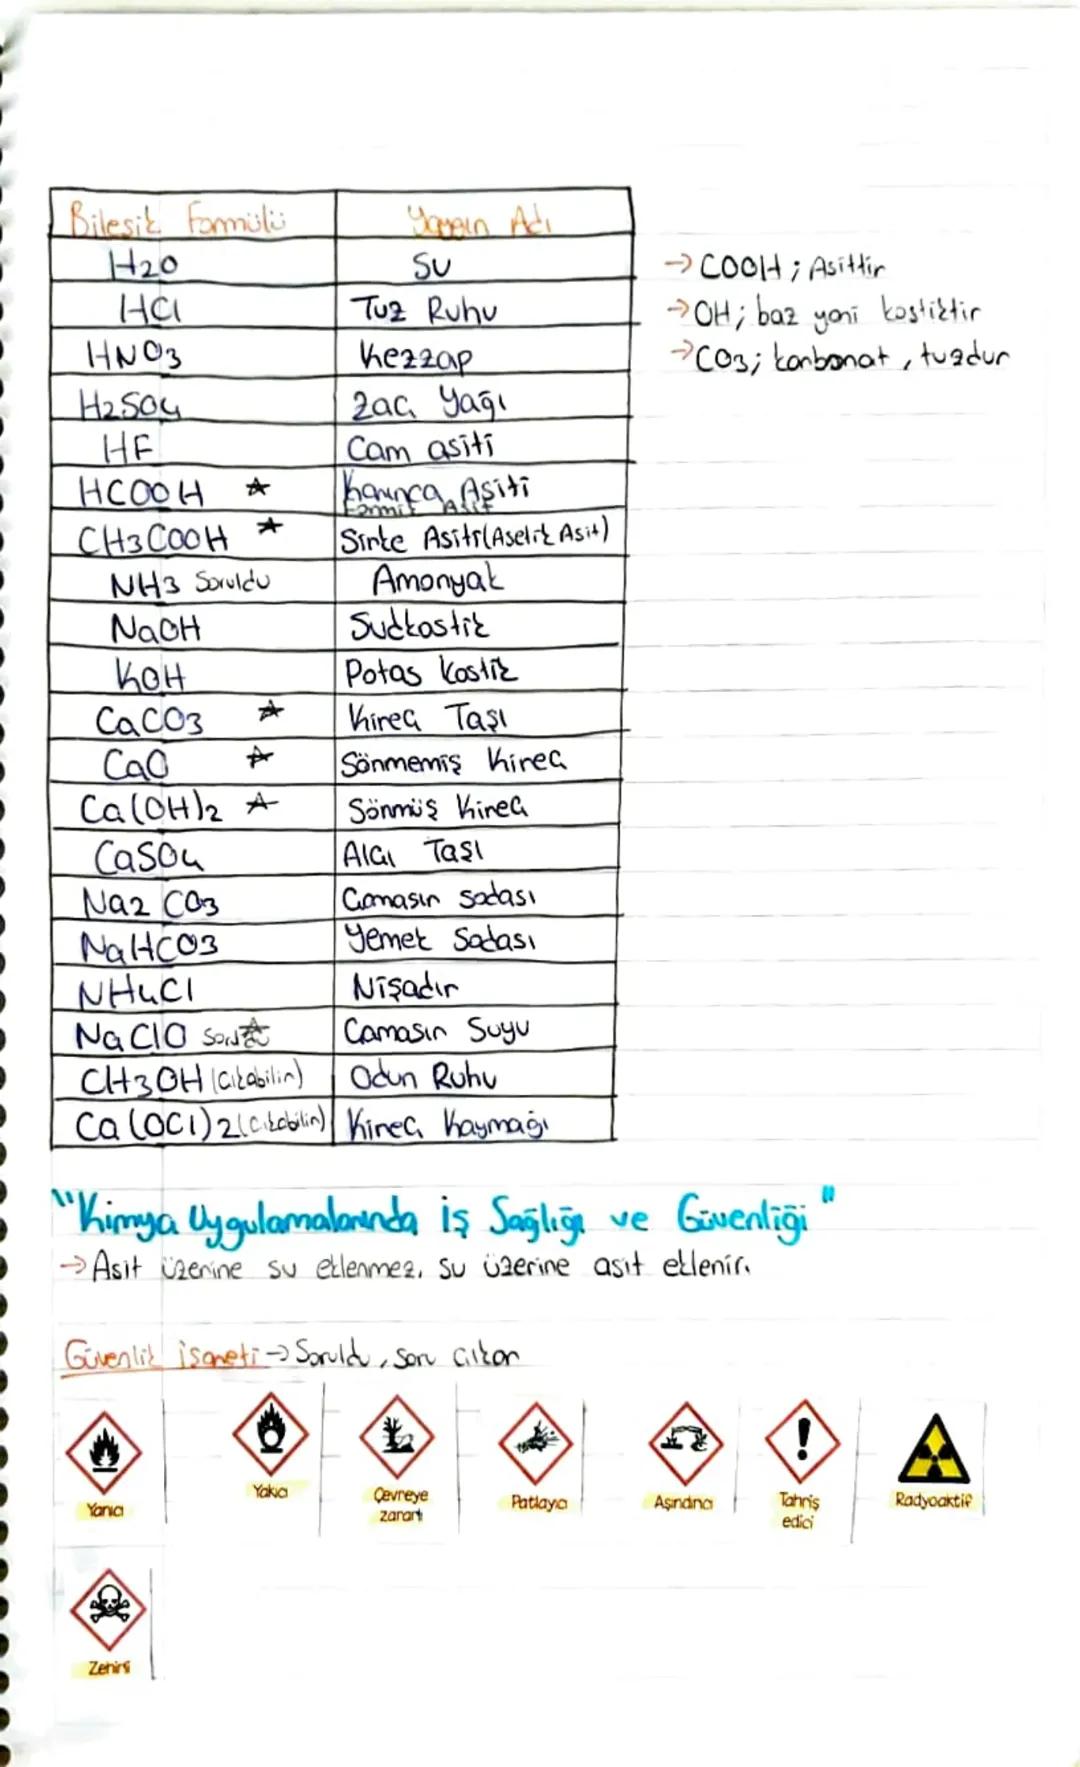 Bileşik Formülü Yaygın Adı
H2O Su
HCl Tuz Ruhu
HNO3 Kezzap
H2SO4 Zaç Yağı
HF Cam asiti
HCOOH Karınca Asiti
Formik Asit
CH3COOH Sirke Asiti(Aselik Asit)
NH3 Soruldu Amonyak
NaOH Sudkostik
KOH Potas Kostik
CaCO3 Kireç Taşı
CaO Sönmemiş Kireç
Ca(OH)2 Sönmüş Kireç
CaSO4 Alçı Taşı
Na2 CO3 Çamaşır sodası
NaHCO3 Yemek Sodası
NH4Cl Nişadır
NaClO Çamaşır Suyu
CH3OH (Çıkabilir) Odun Ruhu
Ca(OCl)2(Çıkabilir) Kireç Kaymağı
→ COOH ; Asittir
→ OH ; baz yani kostiktir
→ CO3 ; karbonat , tuzdur
"Kimya Uygulamalarında İş Sağlığı ve Güvenliği"
→ Asit üzerine su eklenmez, su üzerine asit eklenir.
Güvenlik işareti → Soruldu , soru çıkar
Yanıcı
Yakıcı
Çevreye
zararlı
Patlayıcı
Aşındırıcı
Tahriş
edici
Radyoaktif
Zehirli